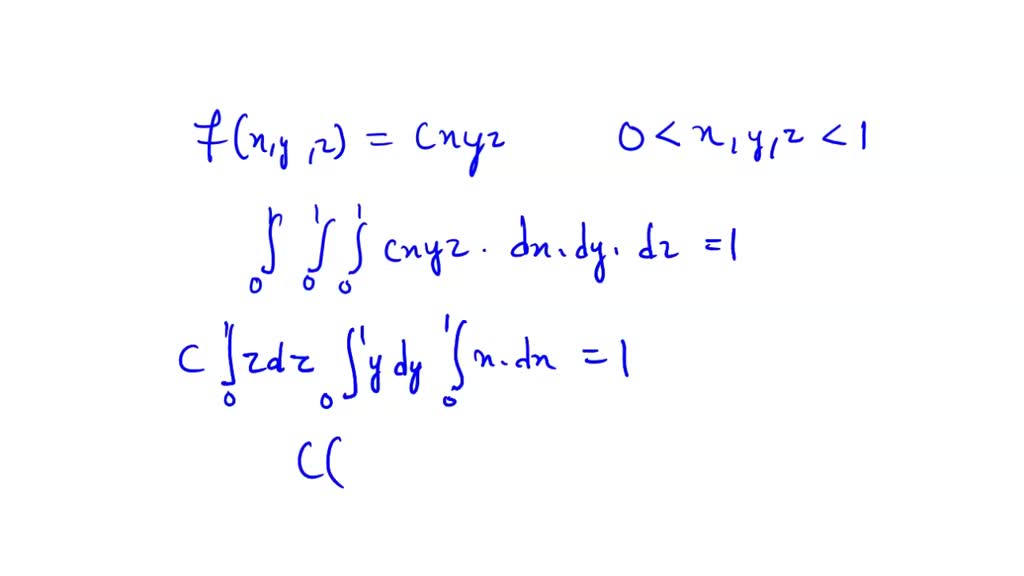 f(x,y,z) = Cxyz 0 < x,y,z < 1
∫₀¹ ∫₀¹ ∫₀¹ cxyz · dx. dy. dz = 1
C ∫₀¹ zdz ∫₀¹ y dy ∫₀¹ x. dx = 1
C(